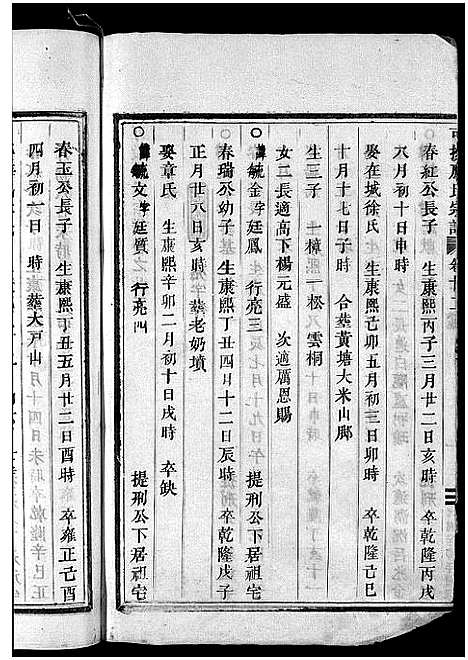 春紅公長子　生康熙丙子三月廿二日亥時　卒乾隆丙戌
六月初十日申時
娶在城徐氏　生康熙己卯五月初三日卯時　卒乾隆己巳
十月十七日子時　合葬黃塘大米山腳
生三子　一樟　一松　雲桐
女二長適高下楊元盛　次適厲恩賜
○諱毓金字廷鳳行亮三　提刑公下居祖宅
春瑞公幼子　生康熙丁丑四月十二日辰時　卒乾隆戊子
正月廿六日亥時　葬老奶墳
娶章氏　生康熙辛卯二月初十日戌時　卒缺
○諱毓文字廷質行亮四　提刑公下居祖宅
春玉公長子　生康熙丁丑五月廿二日酉時　卒雍正己酉
四月初六日　時　葬大戶山